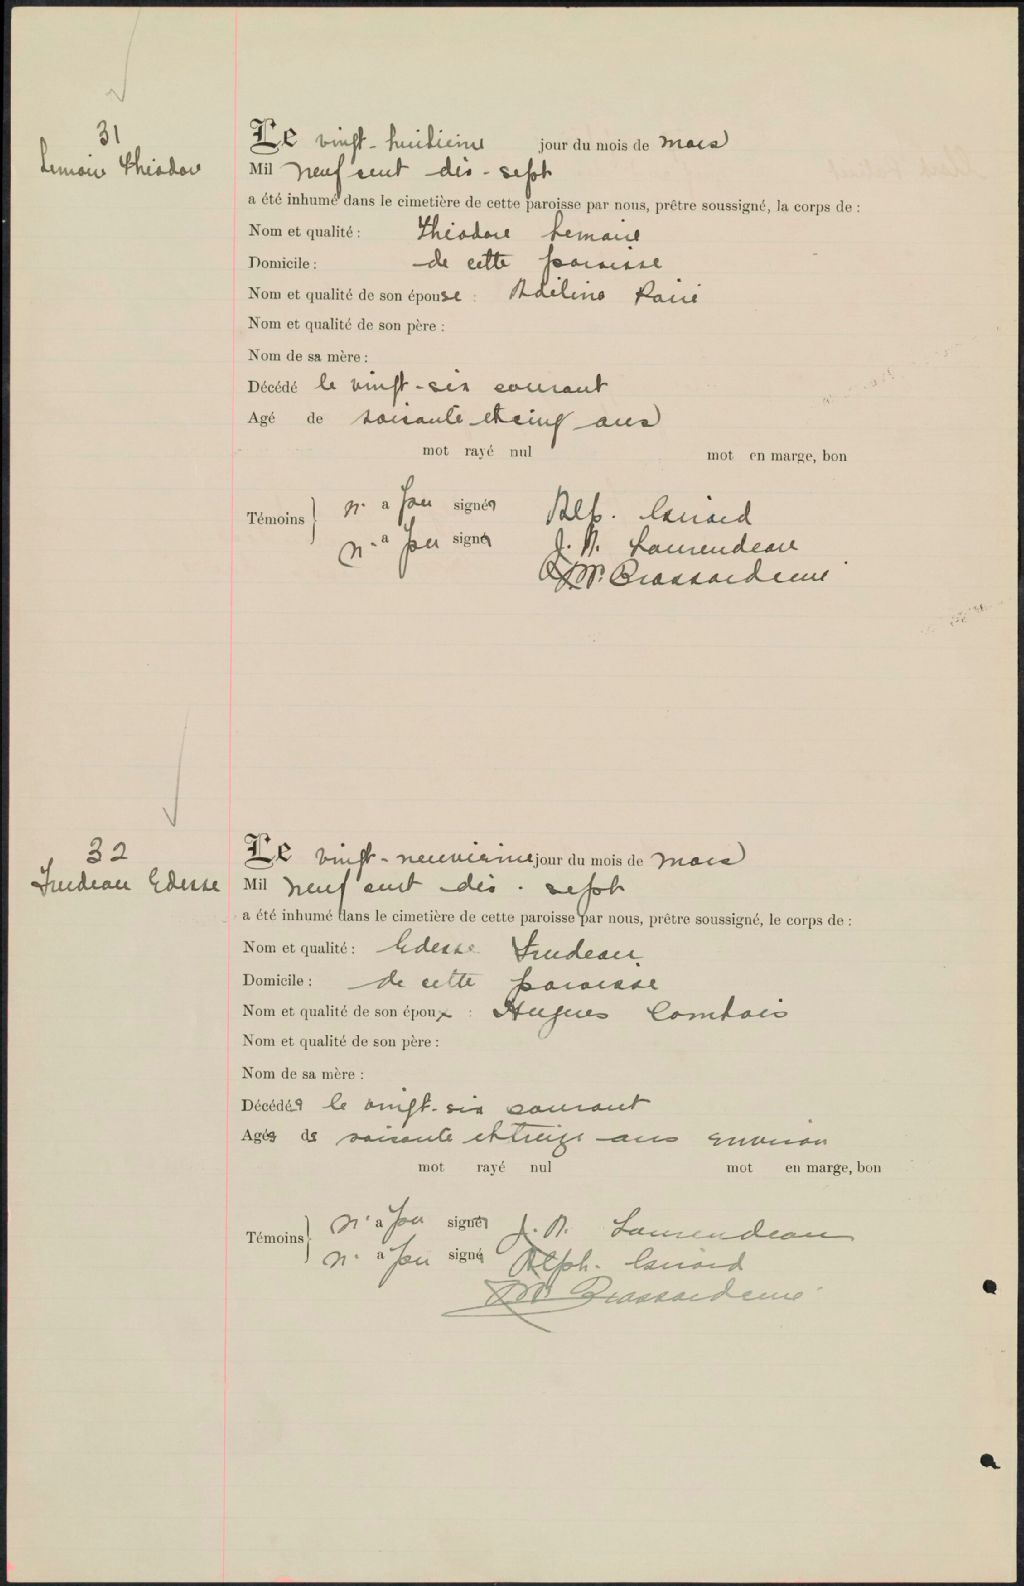 31
Lemaire Théodore
Le vingt-huitième jour du mois de mars
Mil neuf cent dix-sept
a été inhumé dans le cimetière de cette paroisse par nous, prêtre soussigné, la corps de :
Nom et qualité : Théodore Lemaire
Domicile : de cette paroisse
Nom et qualité de son épouse :
Nom et qualité de son père :
Nom de sa mère :
Décédé le vingt-six courant
Agé de soixante et cinq ans
mot rayé nul mot en marge, bon
Témoins } n. a pu signer Alp.
n. a pu signer J. A. Laurendeau
32
Trudeau Edesse
Le vingt-neuvième jour du mois de mars
Mil neuf cent dix-sept
a été inhumé dans le cimetière de cette paroisse par nous, prêtre soussigné, le corps de :
Nom et qualité : Edesse Trudeau
Domicile : de cette paroisse
Nom et qualité de son époux : Hugues Comtois
Nom et qualité de son père :
Nom de sa mère :
Décédée le vingt-six courant
Agée de soixante et treize ans environ
mot rayé nul mot en marge, bon
Témoins } n. a pu signer J. A. Laurendeau
n. a pu signé Alph.